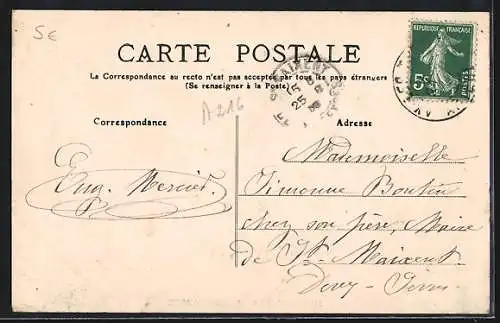 5€
CARTE POSTALE
La Correspondance au recto n'est pas acceptée par tous les pays étrangers
(Se renseigner à la Poste)
REPUBLIQUE FRANÇAISE
5c
POSTES
A216
Correspondance
Adresse
Eug. Mercier.
Mademoiselle
Simonne
chez son père, Maire
de St-Maixent